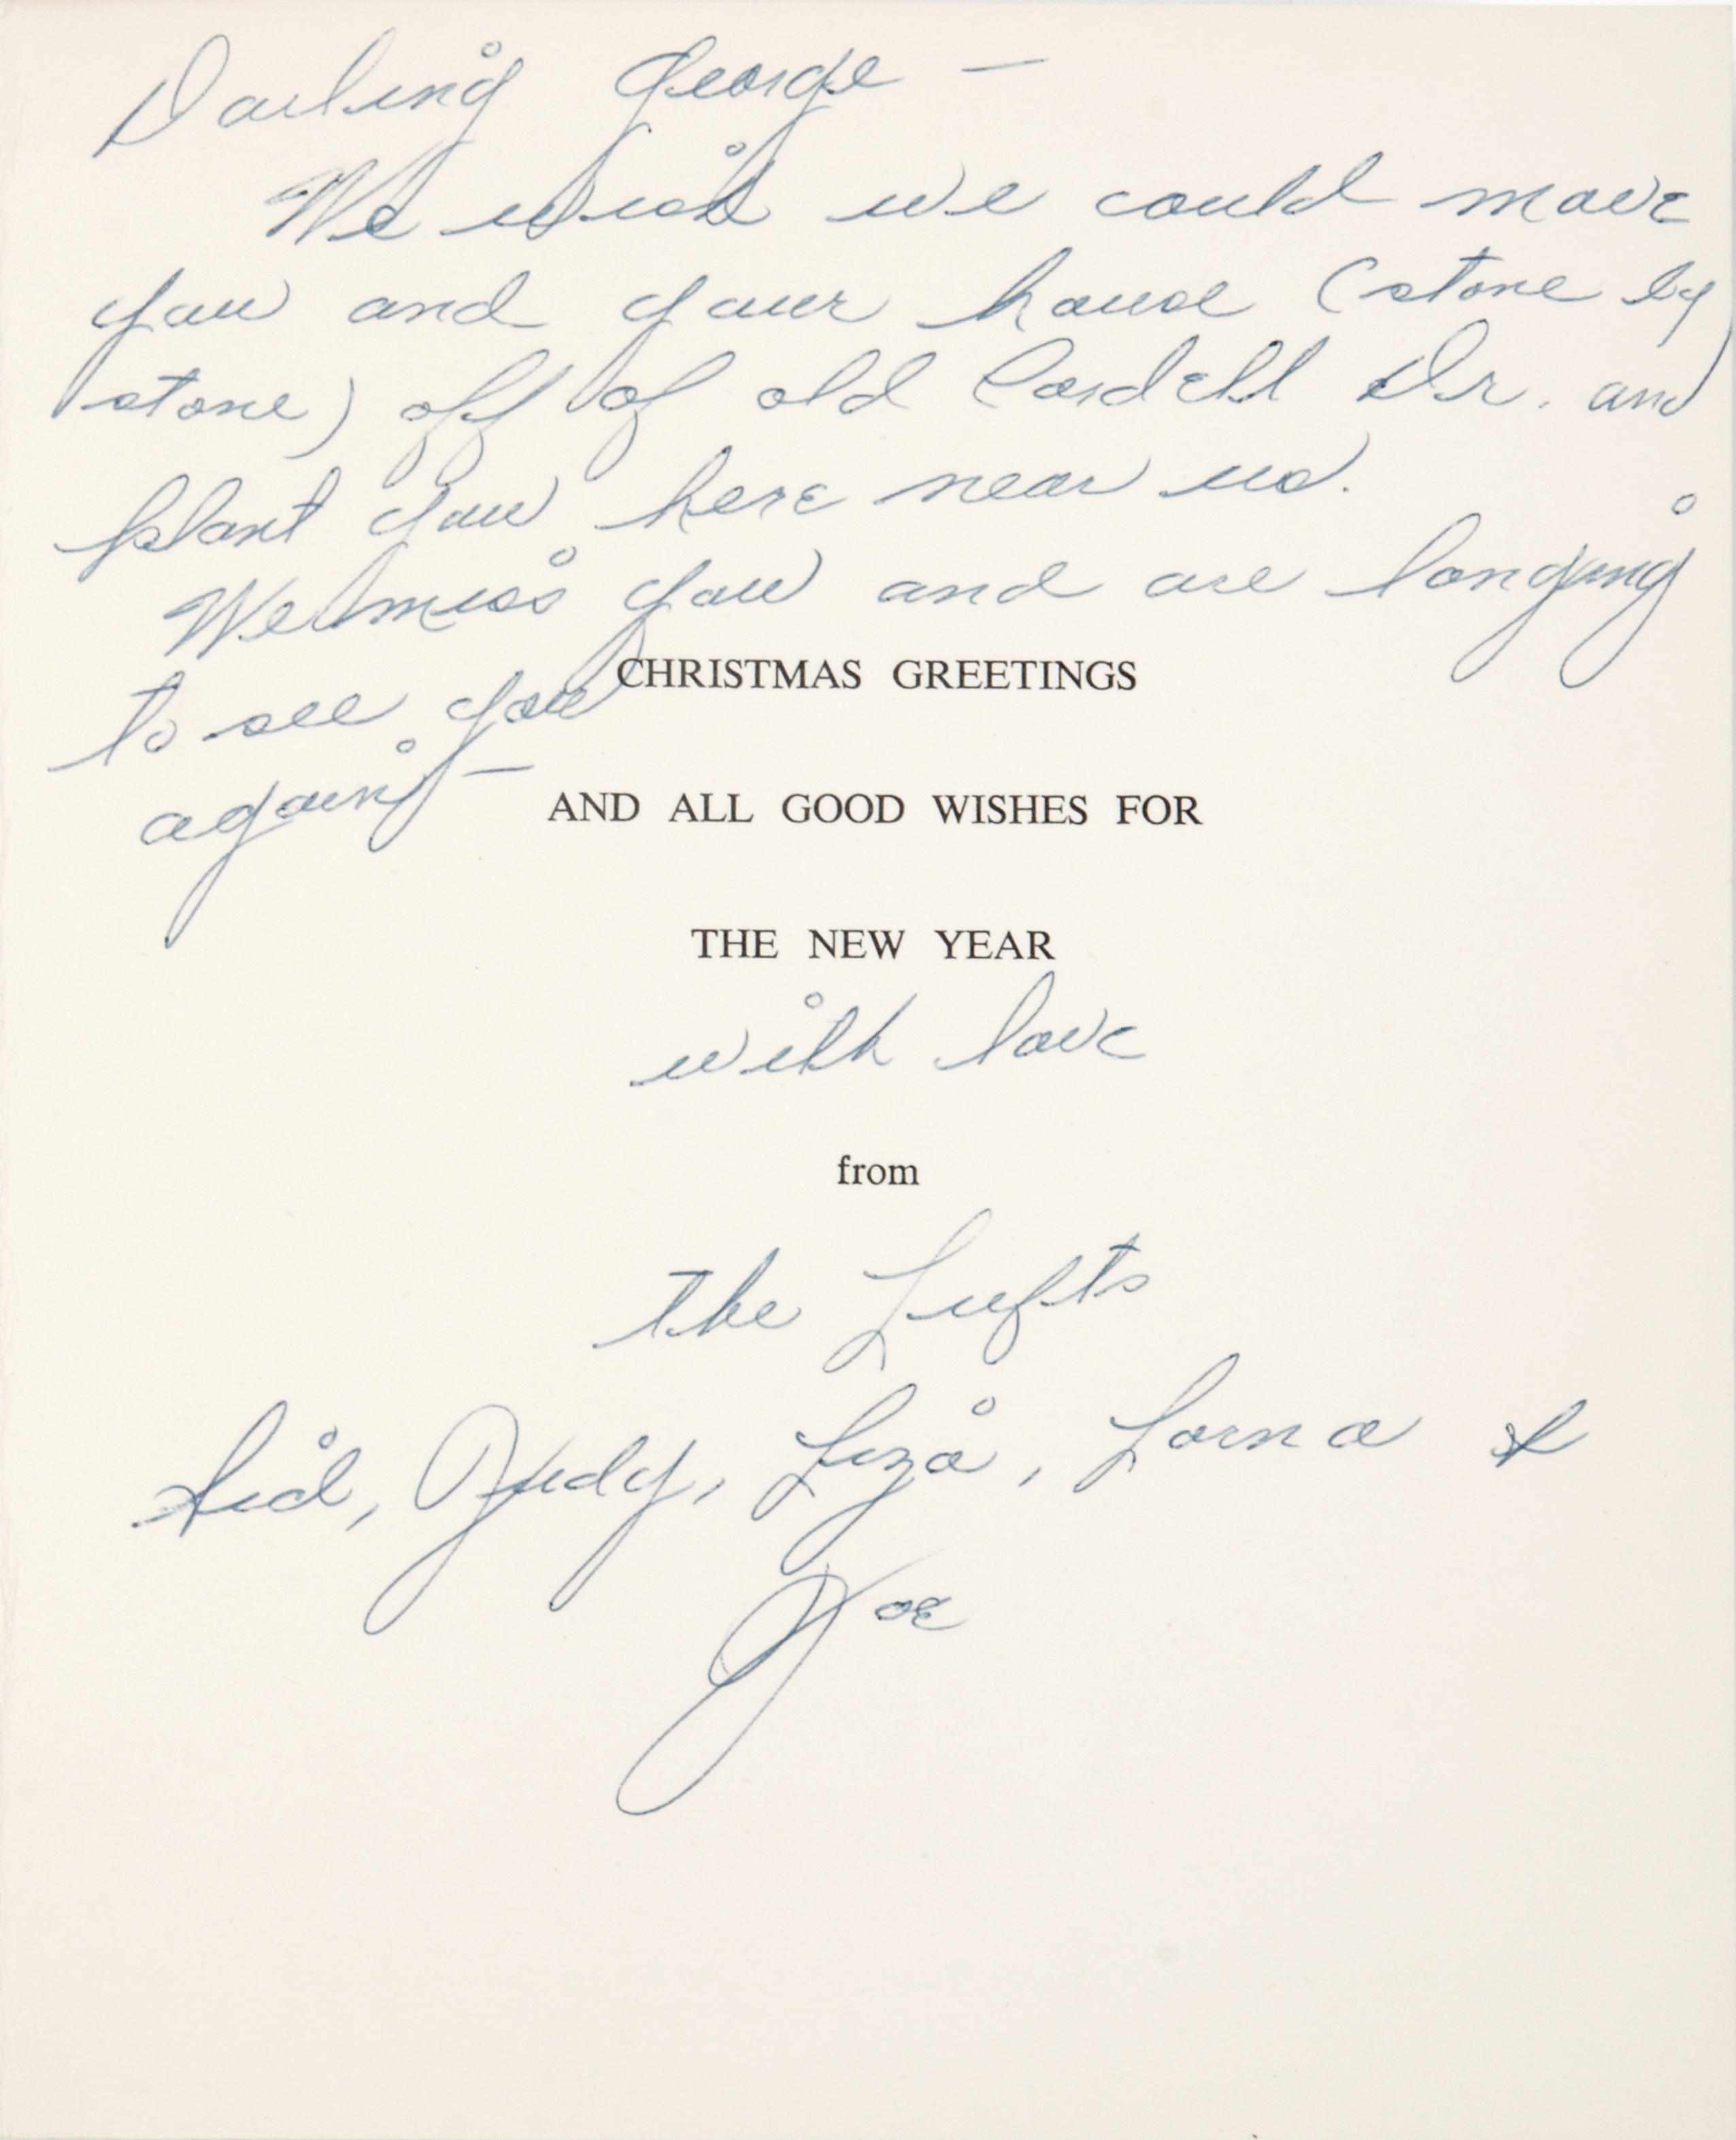 Darling George —
We wish we could move
you and your house (stone by
stone) off of old Cordell Dr. and
plant you here near us.
We miss you and are longing
to see you
again —
CHRISTMAS GREETINGS
AND ALL GOOD WISHES FOR
THE NEW YEAR
with love
from
the Lufts
Sid, Judy, Liza, Lorna &
Joe